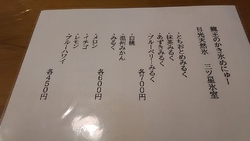 蔵王のかき氷めにゅー
日光天然氷　三ツ星氷室
・とちおとめみるく
・抹茶みるく
・あずきみるく
・ブルーベリーみるく
・白桃
・温州みかん
みるく
各600円
・メロン
・イチゴ
・レモン
・ブルーハワイ
各450円